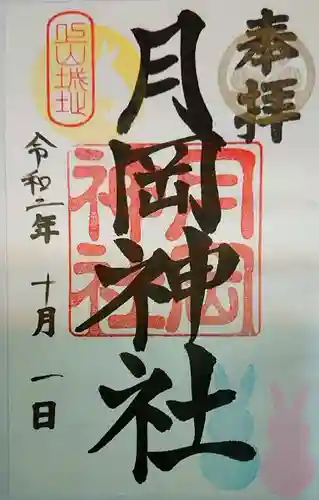 奉拝
月岡神社
月岡
神社
令和二年 十月 一日